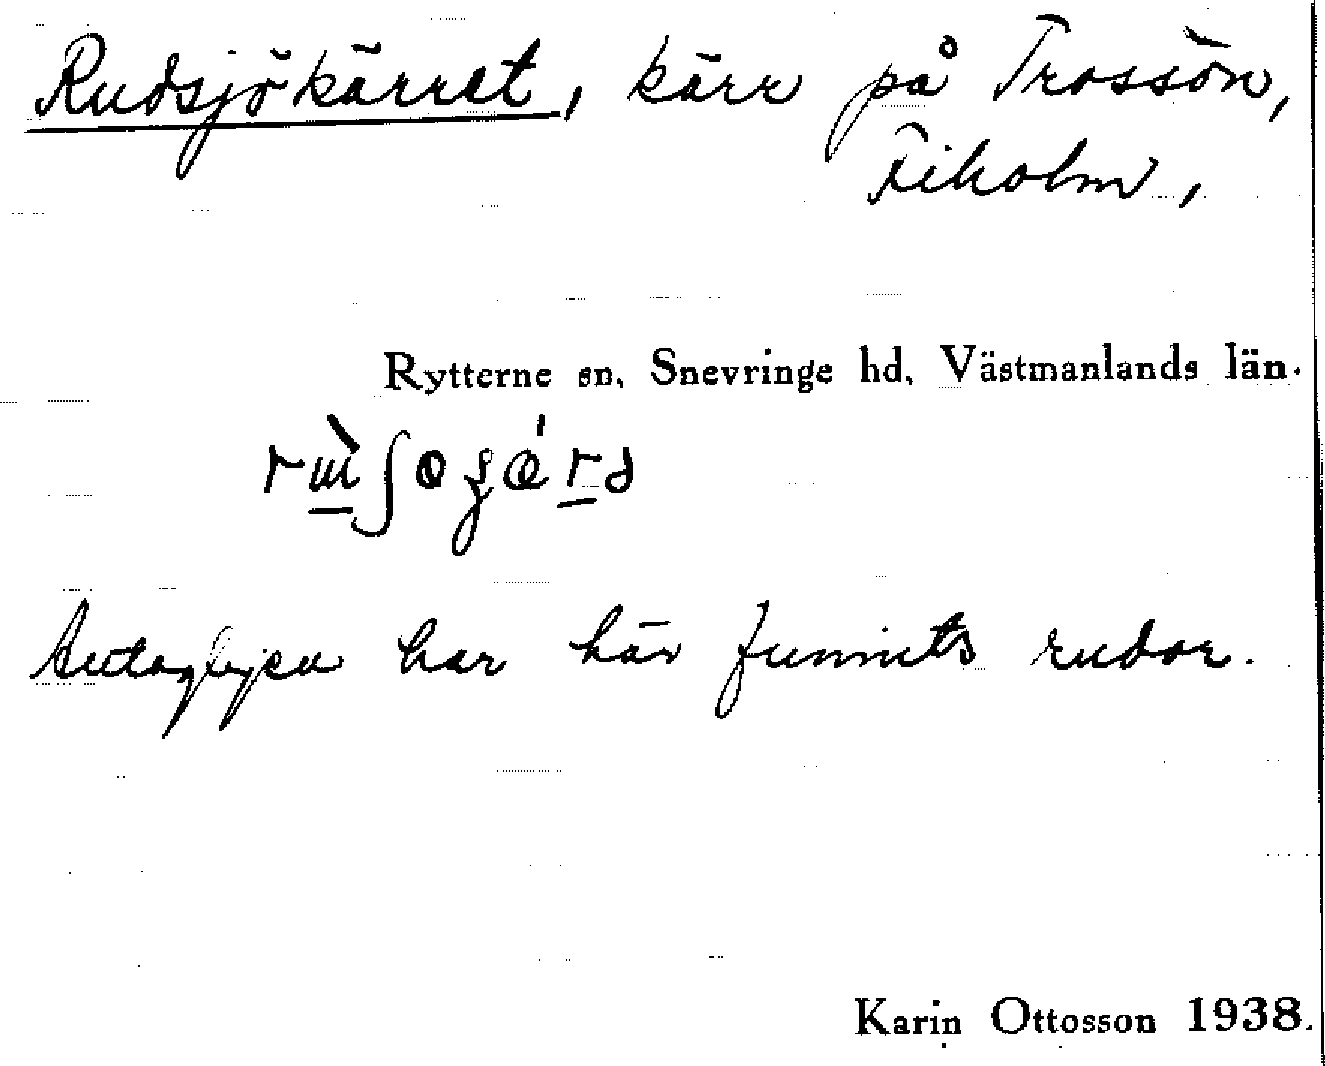 Rudsjökärret, kärr på Trossön,
Fiholm,
Rytterne sn, Snevringe hd, Västmanlands län.
Antagligen har här funnits rudor.
Karin Ottosson 1938.